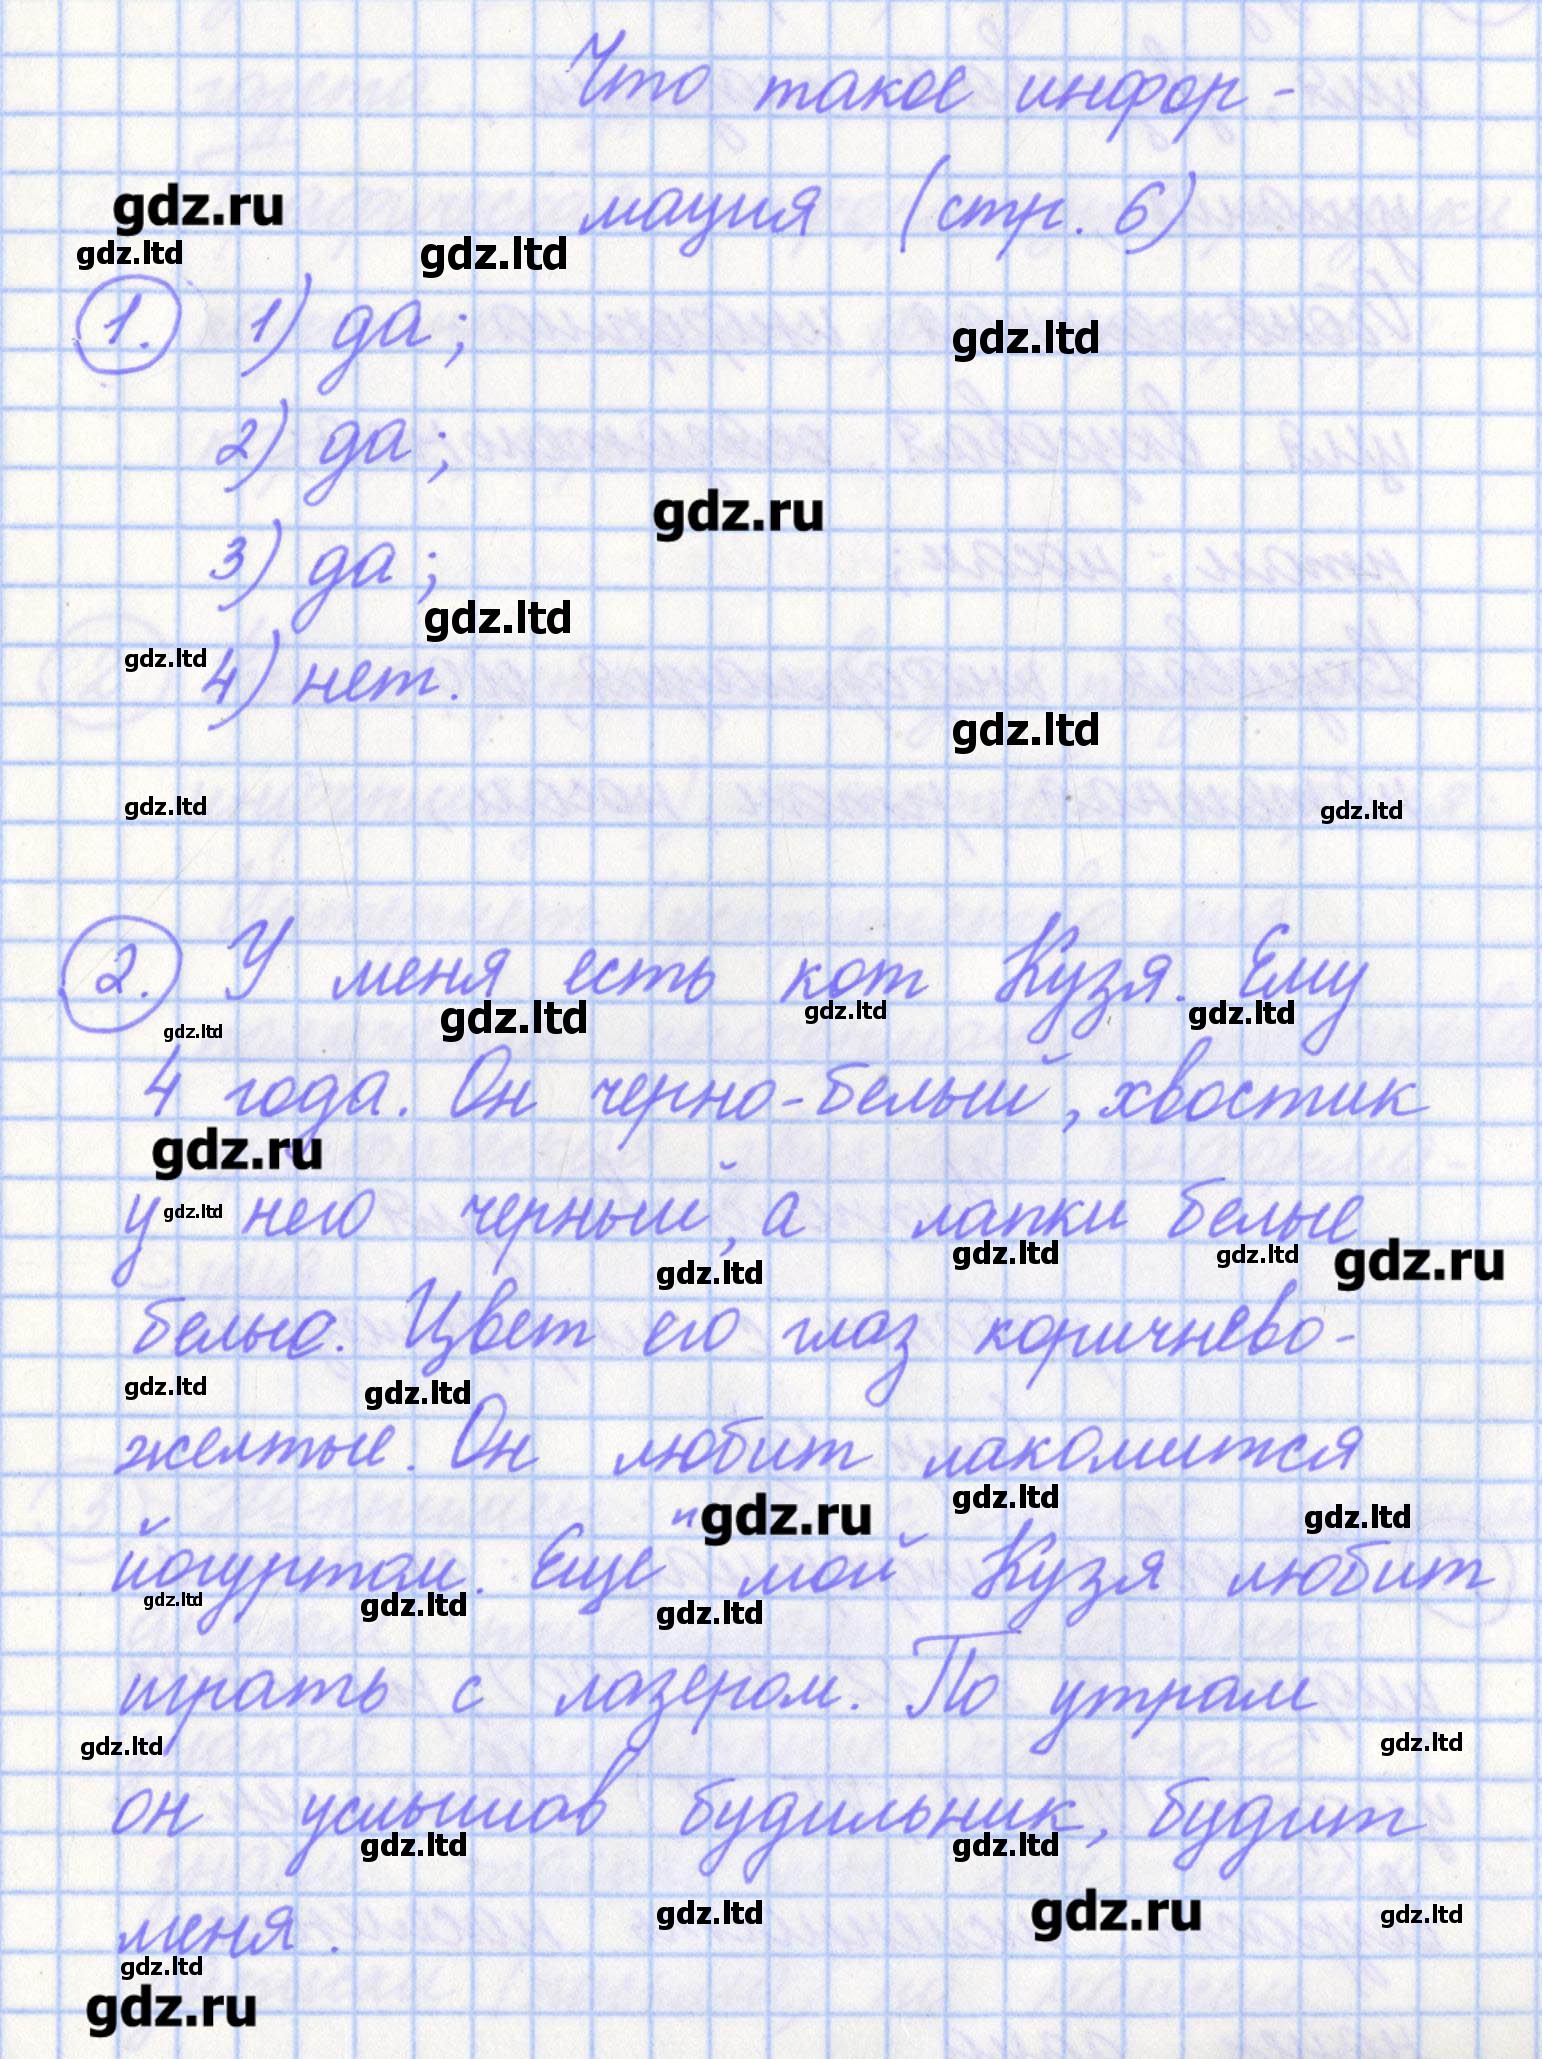 Что такое инфор-
gdz.ru
мация (стр. 6)
gdz.ltd gdz.ltd
1. 1) да;
gdz.ltd
2) да;
gdz.ru
3) да;
gdz.ltd
gdz.ltd
4) нет.
gdz.ltd
gdz.ltd gdz.ltd
2. У меня есть кот Кузя. Ему
gdz.ltd gdz.ltd gdz.ltd gdz.ltd
4 года. Он черно-белый, хвостик
gdz.ru
у него черный, а лапки белые
gdz.ltd gdz.ltd gdz.ltd gdz.ltd gdz.ru
белые. Цвет его глаз коричнево-
gdz.ltd gdz.ltd
желтые. Он любит лакомится
gdz.ru gdz.ltd gdz.ltd
йогуртом. Еще мой Кузя любит
gdz.ltd gdz.ltd gdz.ltd
играть с лазером. По утрам
gdz.ltd gdz.ltd
он услышав будильник, будит
gdz.ltd gdz.ltd
меня.
gdz.ltd gdz.ru gdz.ltd
gdz.ltd
gdz.ru